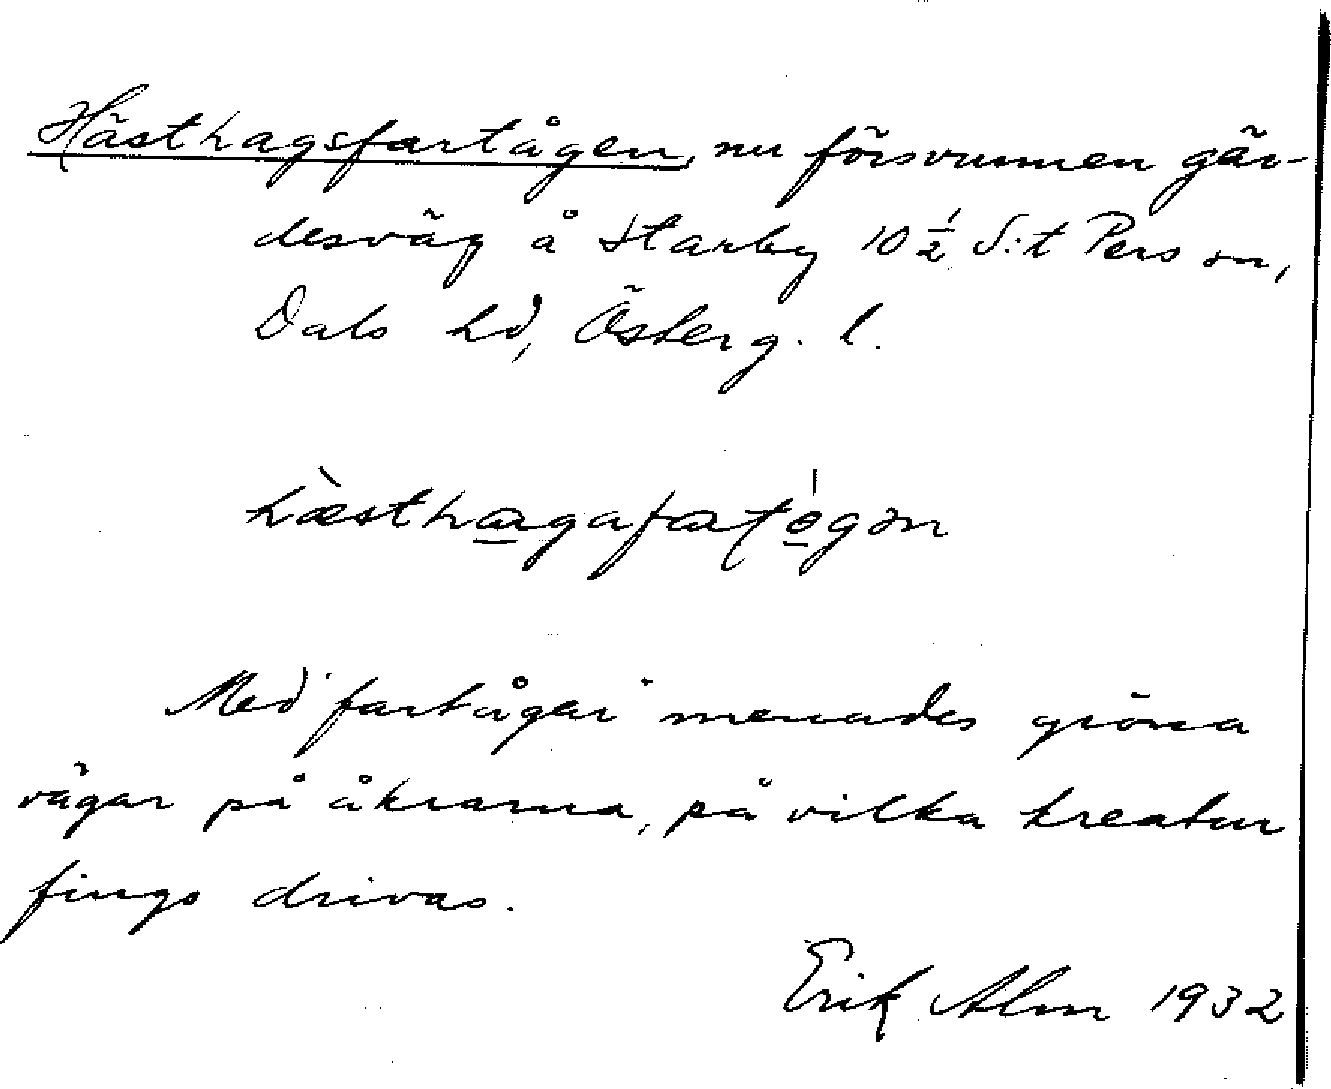 Hästhagsfartågen, nu försvunnen gär-
desväg å Starby 10 ½ S:t Pers sn,
Dals hd, Österg. l.
hæ̀sthagafatógən
Med "fartågar" menades gröna
vägar på åkrarna, på vilka kreatur
fingo drivas.
Erik Alm 1932